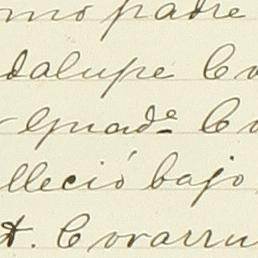 mo padre
dalupe Co
Guad.e Co
lleció bajo
A. Covarru